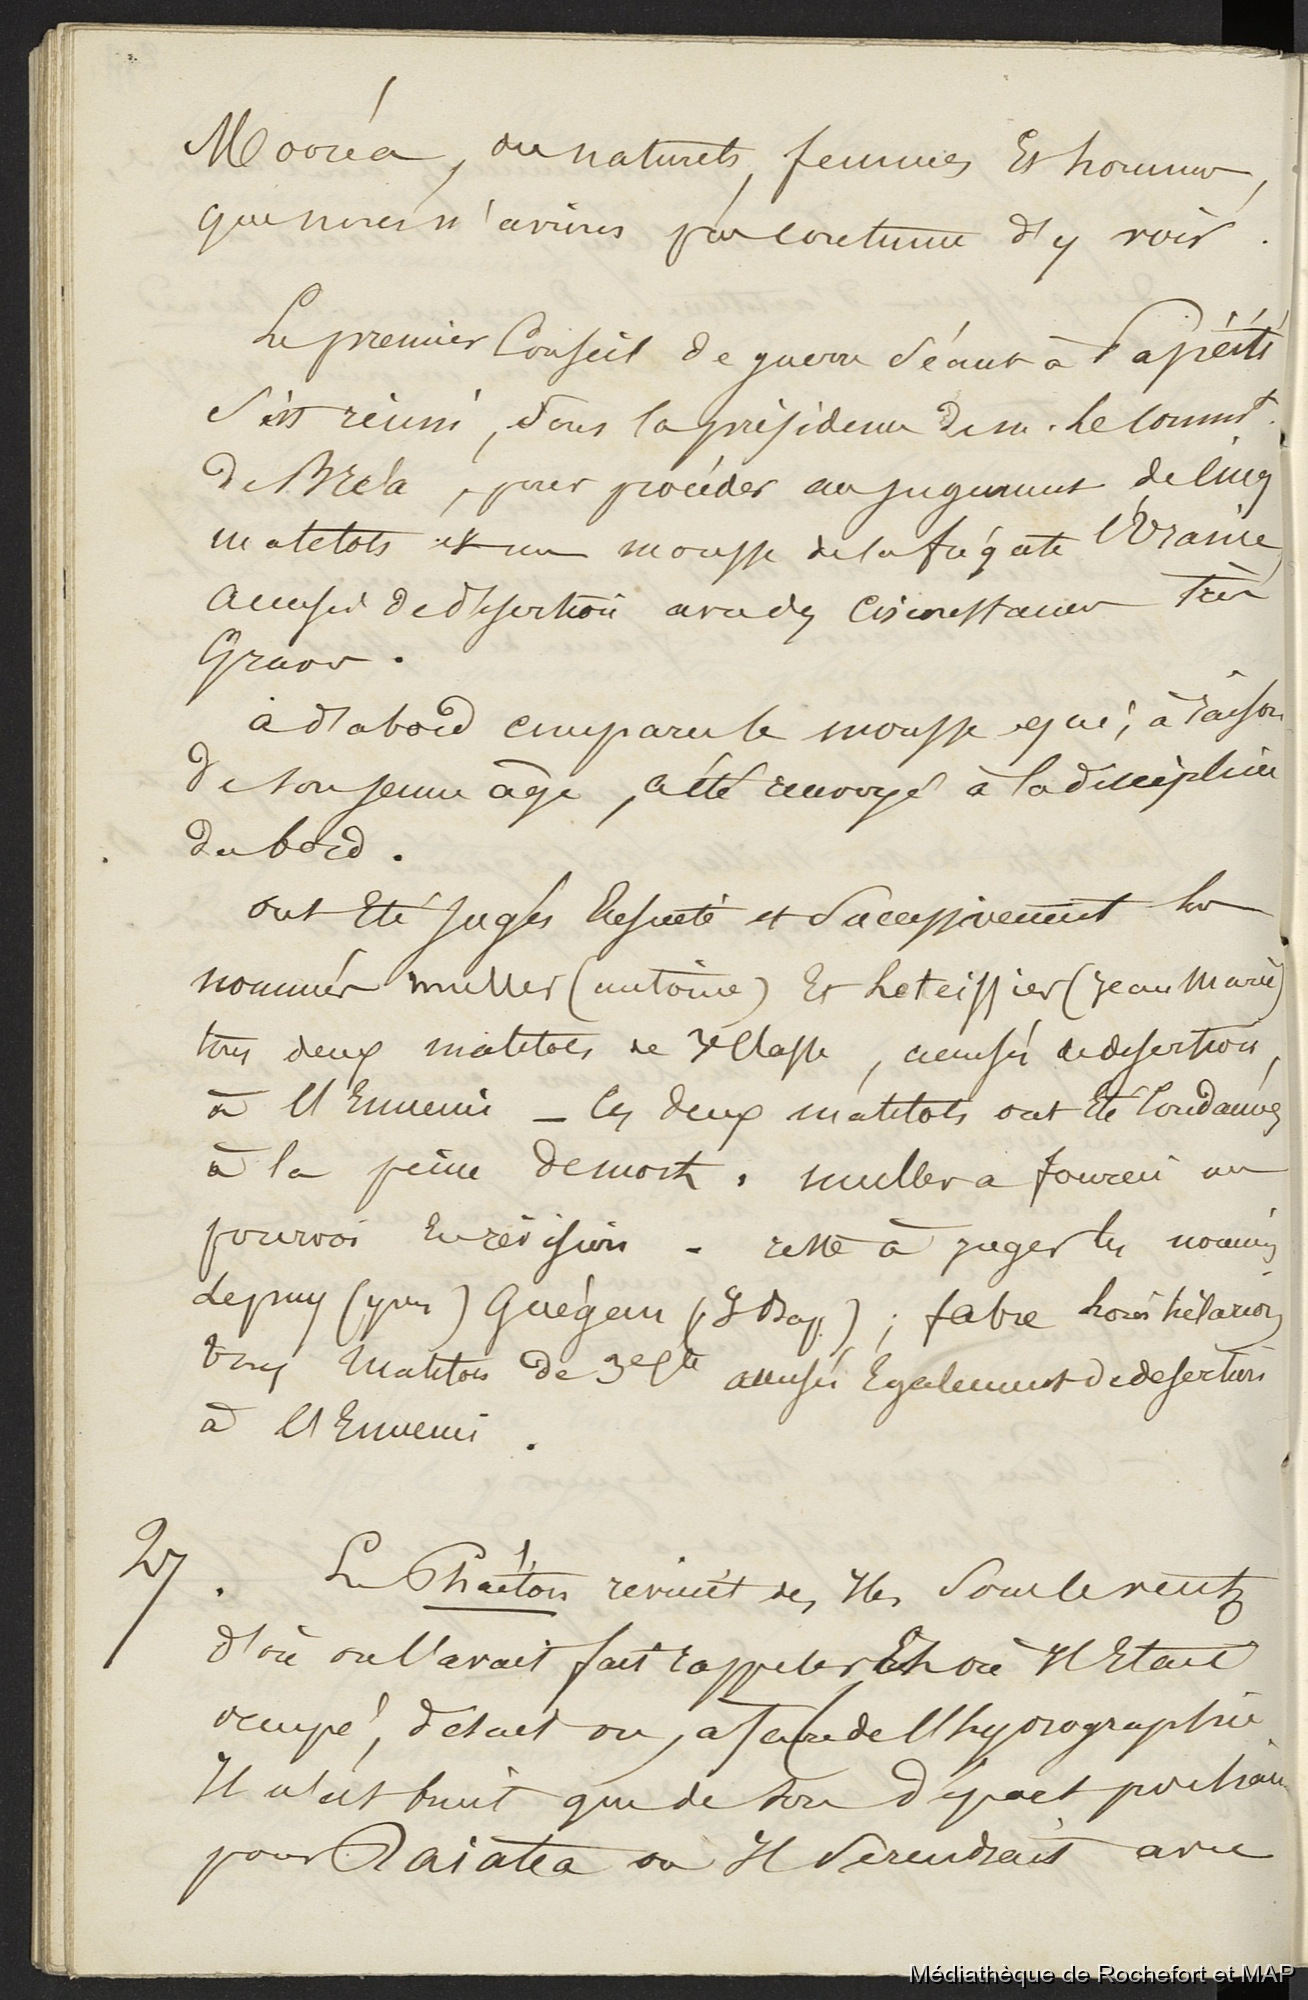 Mooréa, de naturels, femmes Et hommes,
que nous n'avions pas coutume d'y voir.
Le premier Conseil de guerre séant à Papéiti
s'est réuni, sous la présidence de m. le comm.t
de Bréa, pour procéder au jugement de cinq
matelots et un mousse de la frégate l'Uranie
accusés de désertion avec des circonstances très
Graves.
a d'abord comparu le mousse qui, à raison
de son jeune âge, a été renvoyé à la discipline
du bord.
ont Eté jugés Ensuite et Successivement les
nommés muller (antoine) Et Leteissier (Jean Marie)
tous deux matelots de 3e Classe, accusés de desertion,
à l'Ennemi – Ces deux matelots ont Eté Condamnés
à la peine de mort. muller a fourni un
pourvoi En révision - reste à juger les nommés
Lepuy (yves) Guégen (J Bap.); fabre louis hilarion
tous Matelots de 3e Cle accusés Egalement de desertion
à l'Ennemi.
27. Le Phaéton revint des Iles Sous le vent
d'où on l'avait fait rappeler Et où Il Etait
occupé, disait on, a faire de l'hydrographie
Il n'est bruit que de son départ prochain
pour Raiatea ou Il Se rendrait avec
Médiathèque de Rochefort et MAP